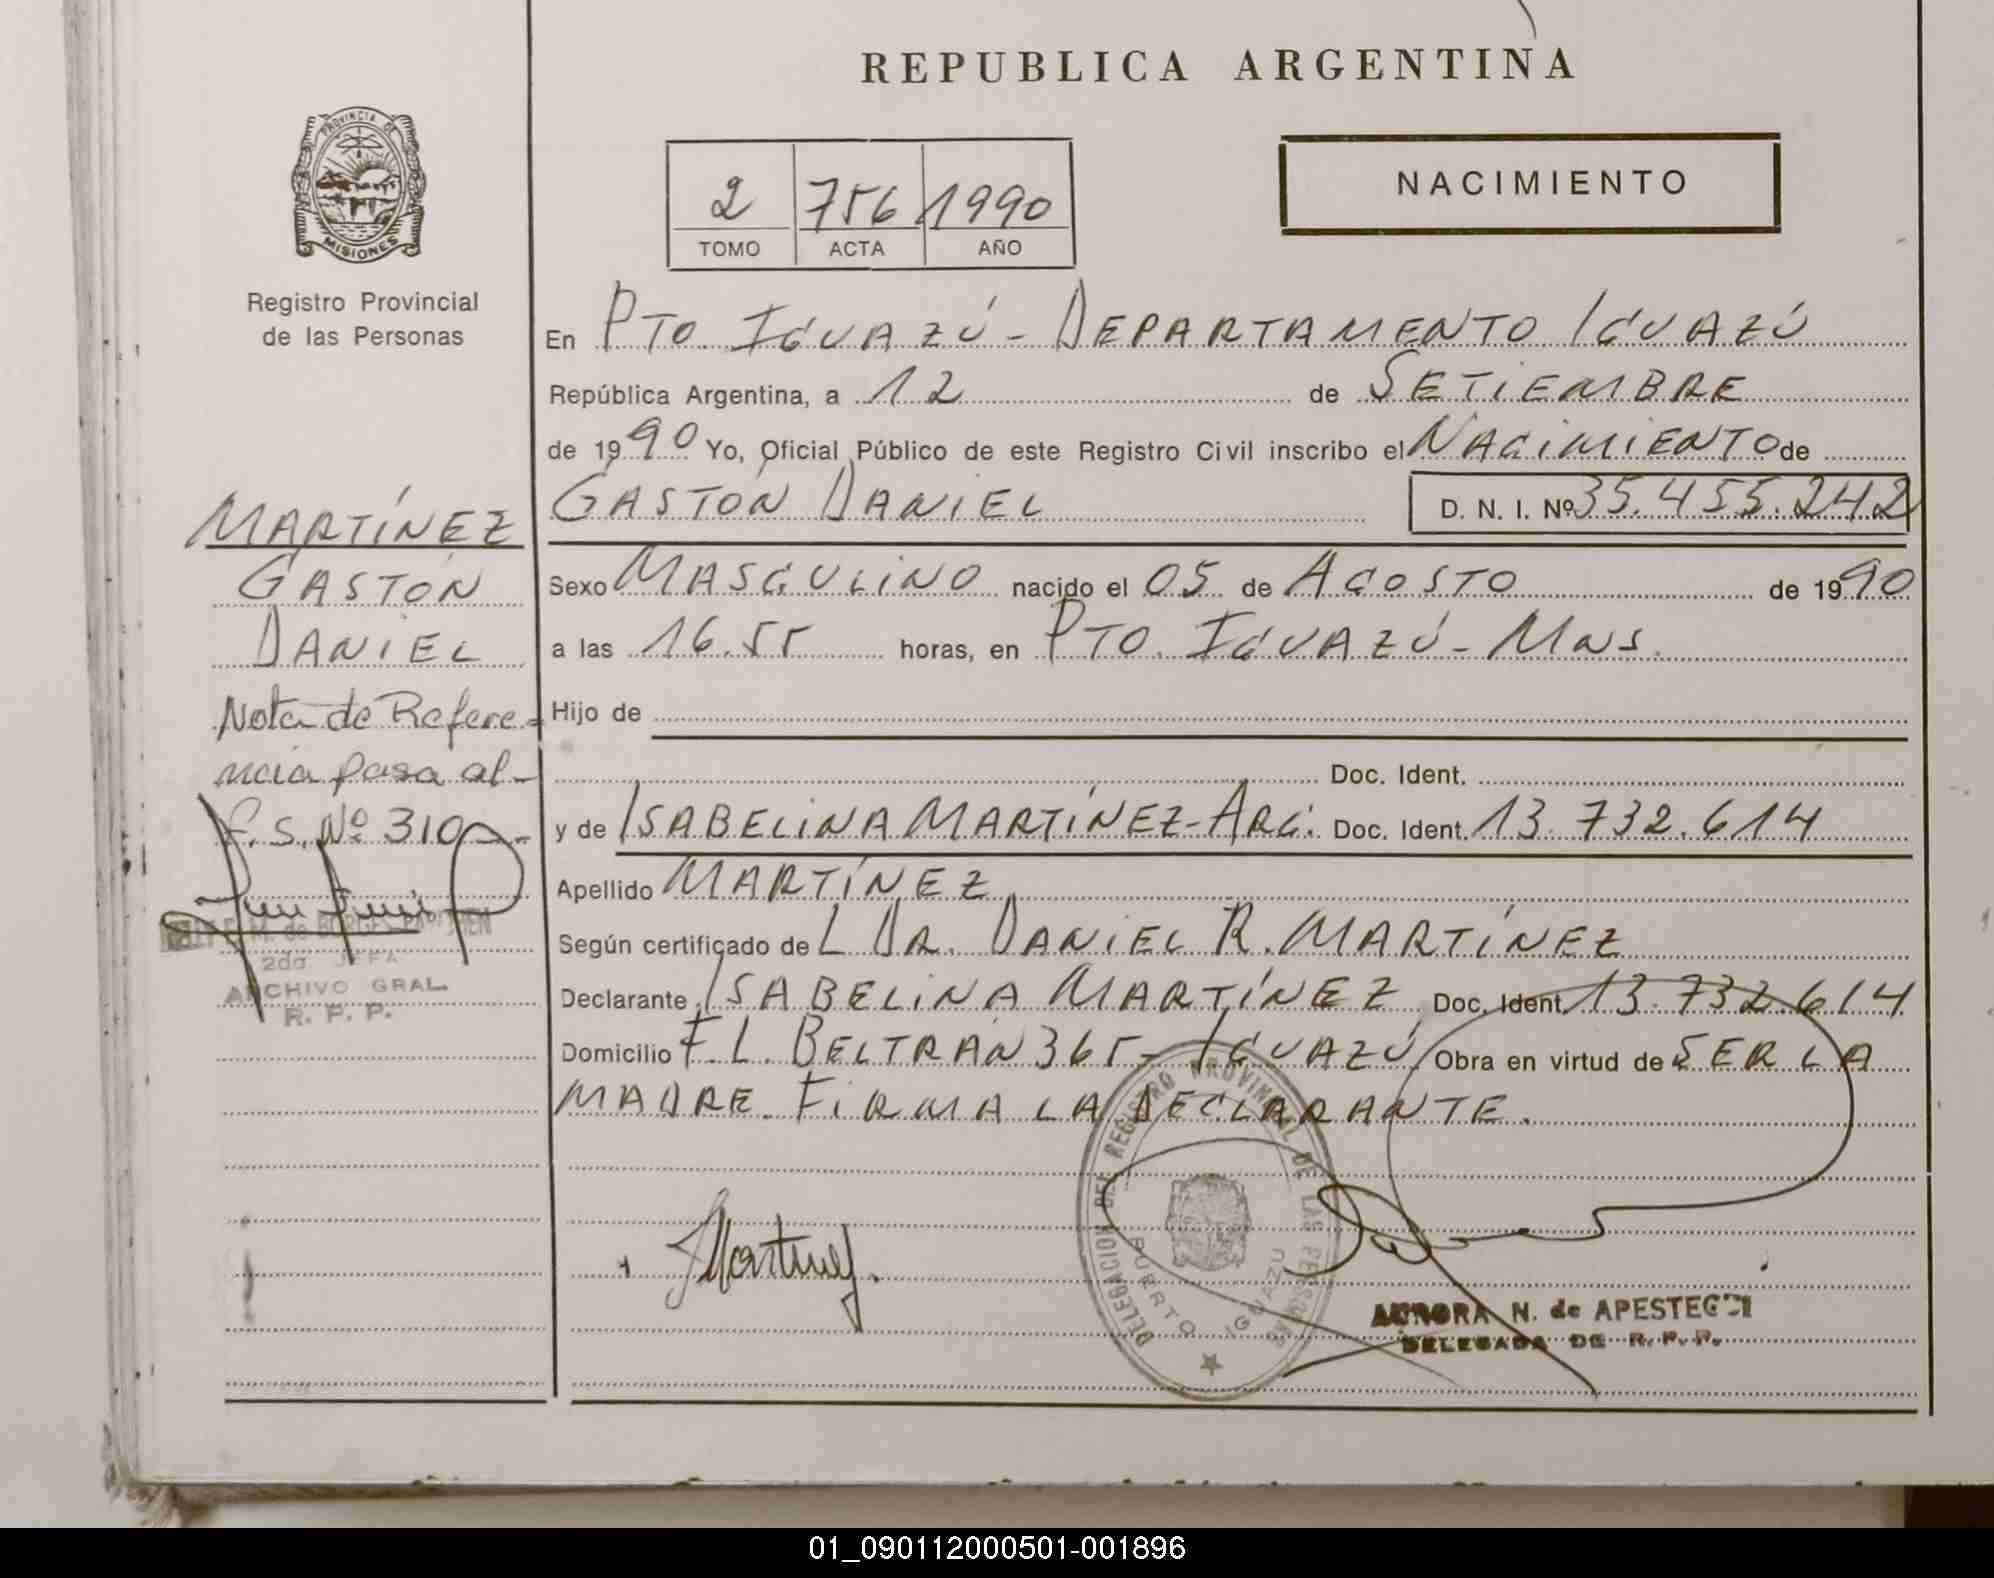 REPUBLICA ARGENTINA
PROVINCIA DE
MISIONES
Registro Provincial
de las Personas
2 756 1990
TOMO ACTA AÑO
NACIMIENTO
En PTO. IGUAZÚ - DEPARTAMENTO IGUAZÚ
República Argentina, a 12 de SETIEMBRE
de 1990 Yo, Oficial Público de este Registro Civil inscribo el NACIMIENTO de
GASTÓN DANIEL D. N. I. Nº 35.455.242
Sexo MASCULINO nacido el 05 de AGOSTO de 1990
a las 16.55 horas, en PTO. IGUAZÚ - MNS.
Hijo de
Doc. Ident.
y de ISABELINA MARTÍNEZ - ARG. Doc. Ident. 13.732.614
Apellido MARTÍNEZ
Según certificado de L DR. DANIEL R. MARTÍNEZ
Declarante ISABELINA MARTÍNEZ Doc. Ident. 13.732.614
Domicilio F. L. BELTRÁN 365 - IGUAZÚ Obra en virtud de SER LA
MADRE. FIRMA LA DECLARANTE.
MARTÍNEZ
GASTÓN
DANIEL
Nota de Refere-
ncia pasa al-
F.S. Nº 310
M. de BORGES
2da. JEFA
ARCHIVO GRAL.
R. P. P.
DELEGACION DEL REGISTRO PROVINCIAL DE LAS PERSONAS
PUERTO IGUAZU
Martinez
AURORA N. de APESTEGUI
DELEGADA DE R. P. P.
01_090112000501-001896